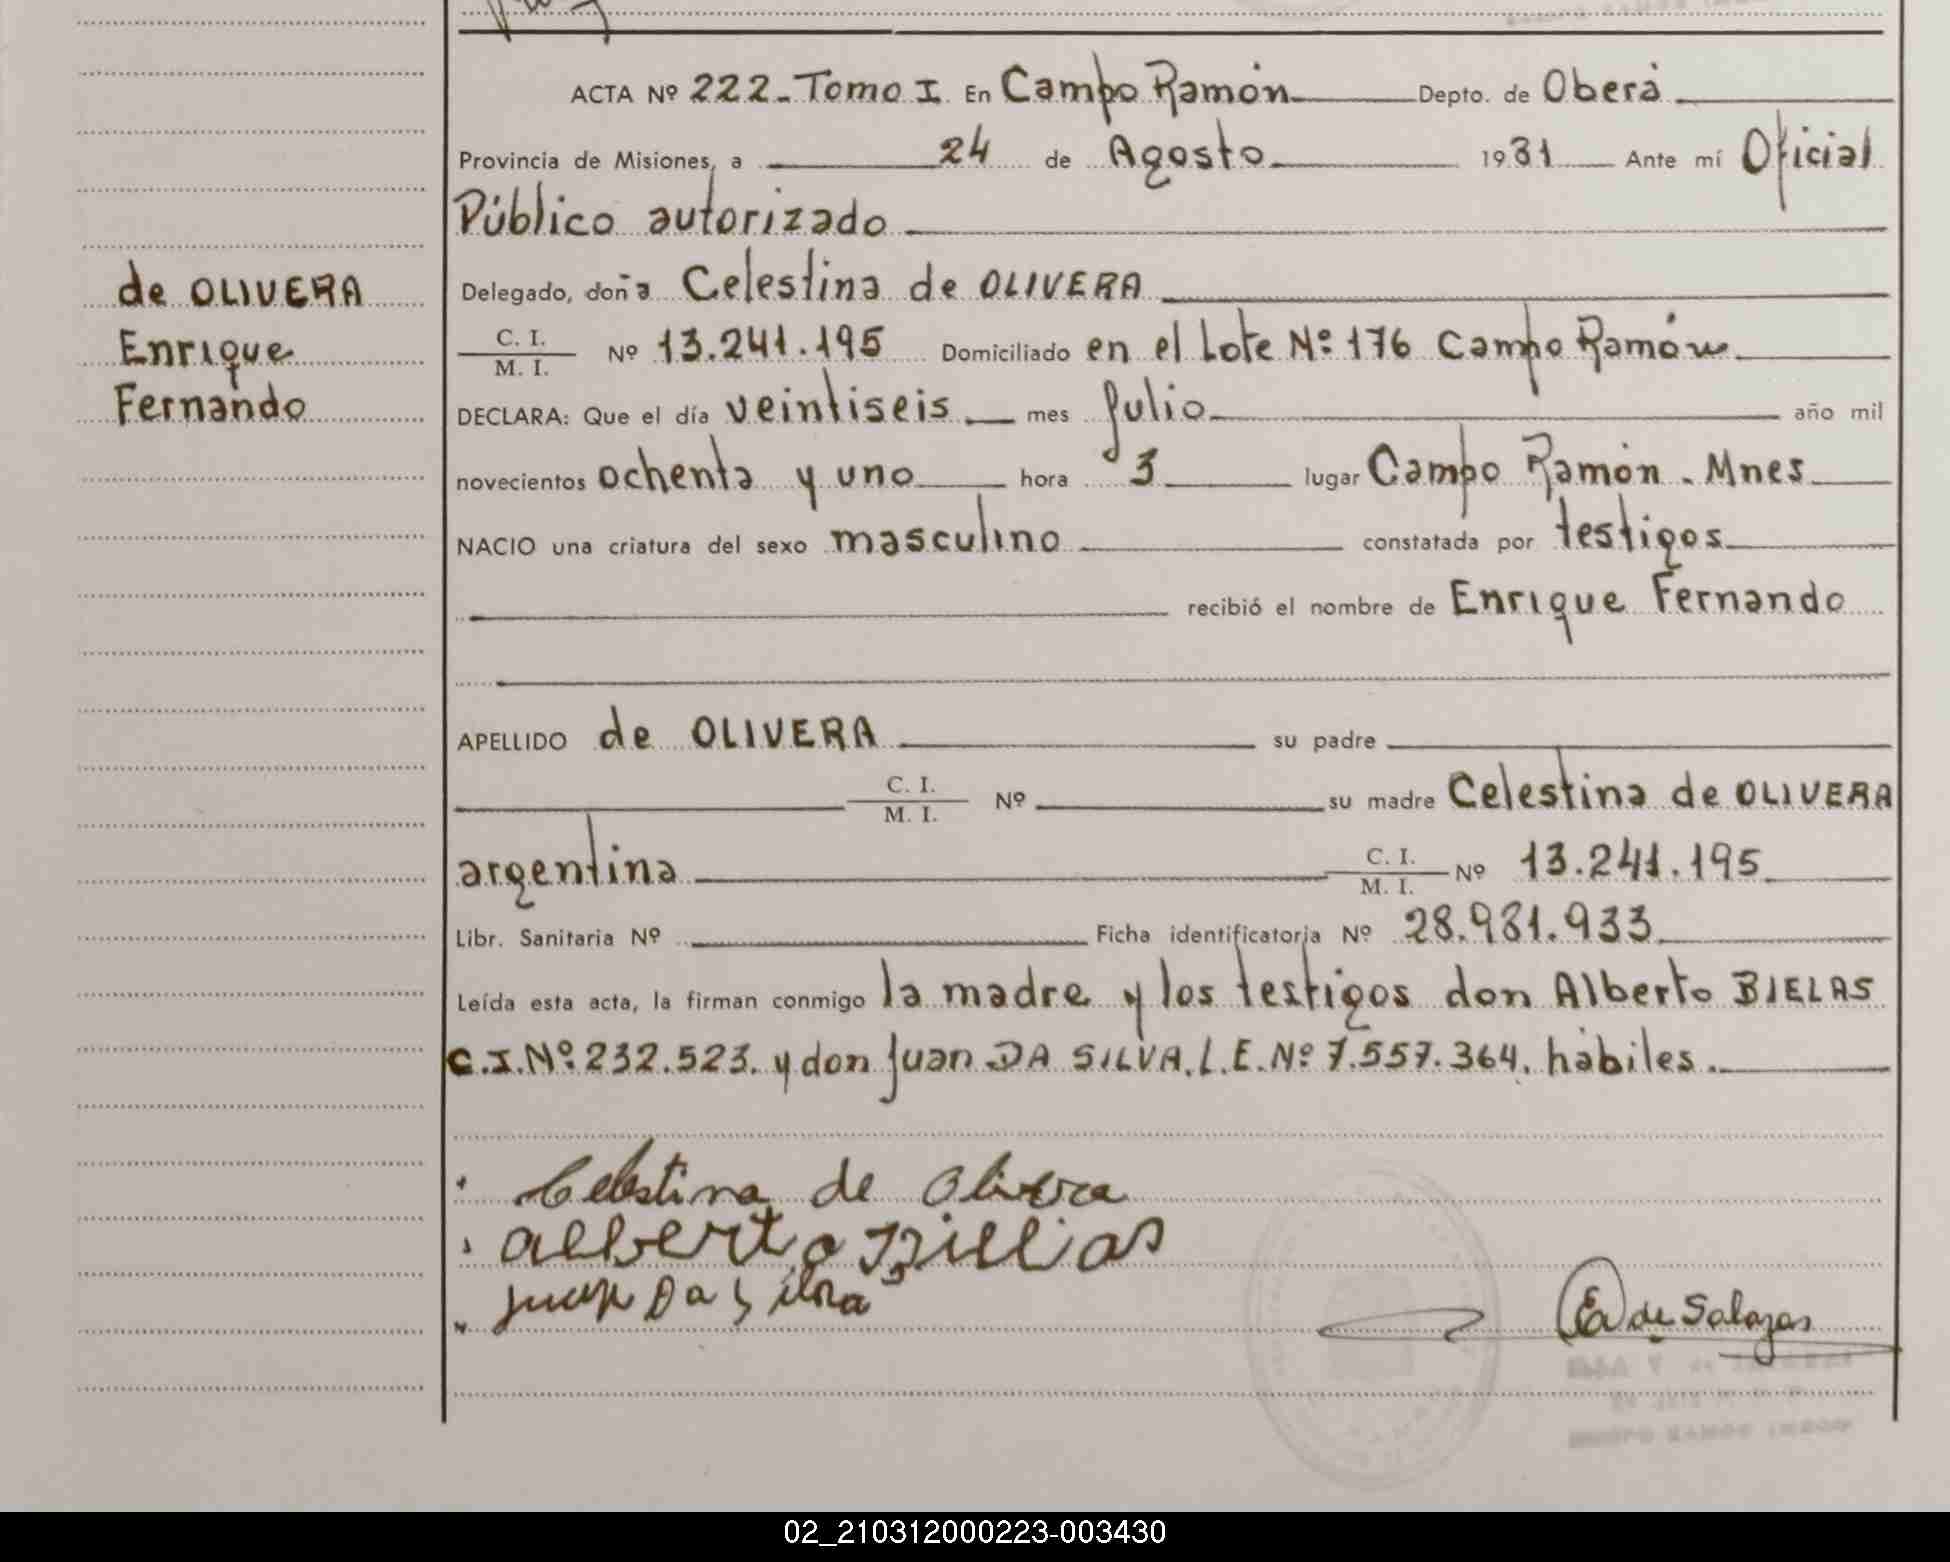 ACTA Nº 222-Tomo I. En Campo Ramón Depto. de Oberá
Provincia de Misiones, a 24 de Agosto 1981 Ante mí Oficial
Público autorizado
de OLIVERA
Enrique
Fernando
Delegado, doña Celestina de OLIVERA
C. I.
M. I. Nº 13.241.195 Domiciliado en el Lote Nº 176 Campo Ramón
DECLARA: Que el día veintiseis mes Julio año mil
novecientos ochenta y uno hora 3 lugar Campo Ramón - Mnes
NACIO una criatura del sexo masculino constatada por testigos
recibió el nombre de Enrique Fernando
APELLIDO de OLIVERA su padre
C. I.
M. I. Nº su madre Celestina de OLIVERA
argentina C. I.
M. I. Nº 13.241.195
Libr. Sanitaria Nº Ficha identificatoria Nº 28.981.933
Leída esta acta, la firman conmigo la madre y los testigos don Alberto BIELAS
C.I.Nº 232.523. y don Juan DA SILVA. L.E.Nº 7.557.364. hábiles.
Celestina de Olivera
Alberto Billias
Juan Da Silva
E de Salazar
02_210312000223-003430